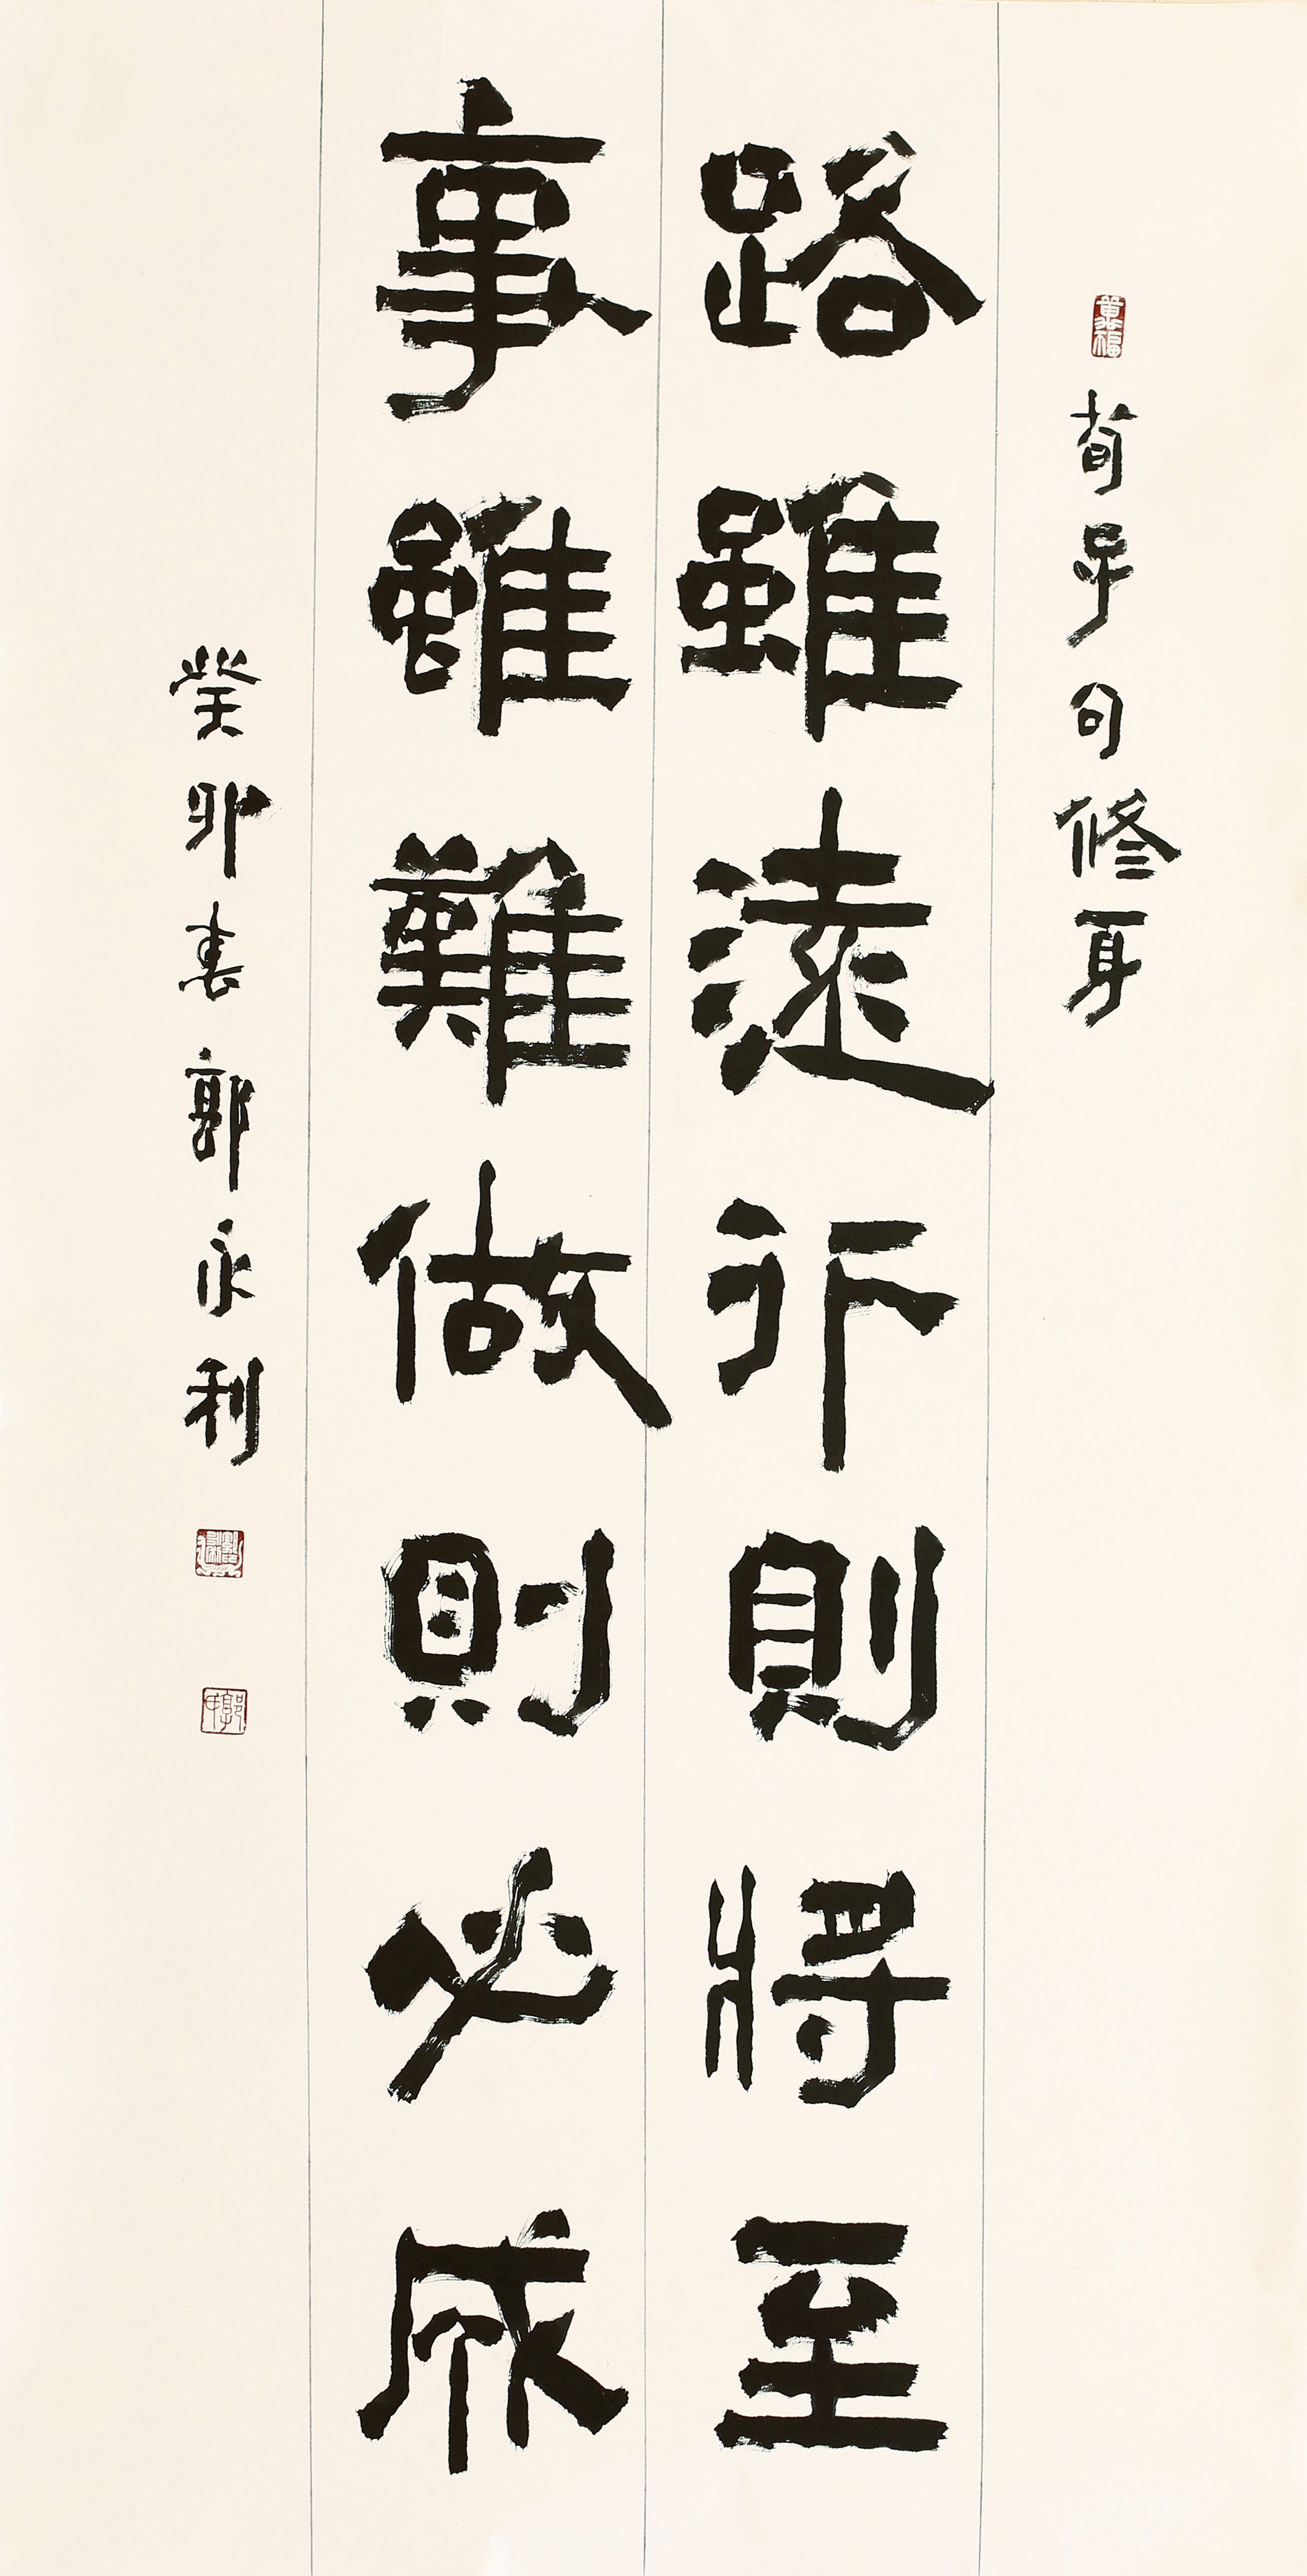 荀子句修身
路雖遠行則將至
事雖難做則必成
癸卯春郭永利